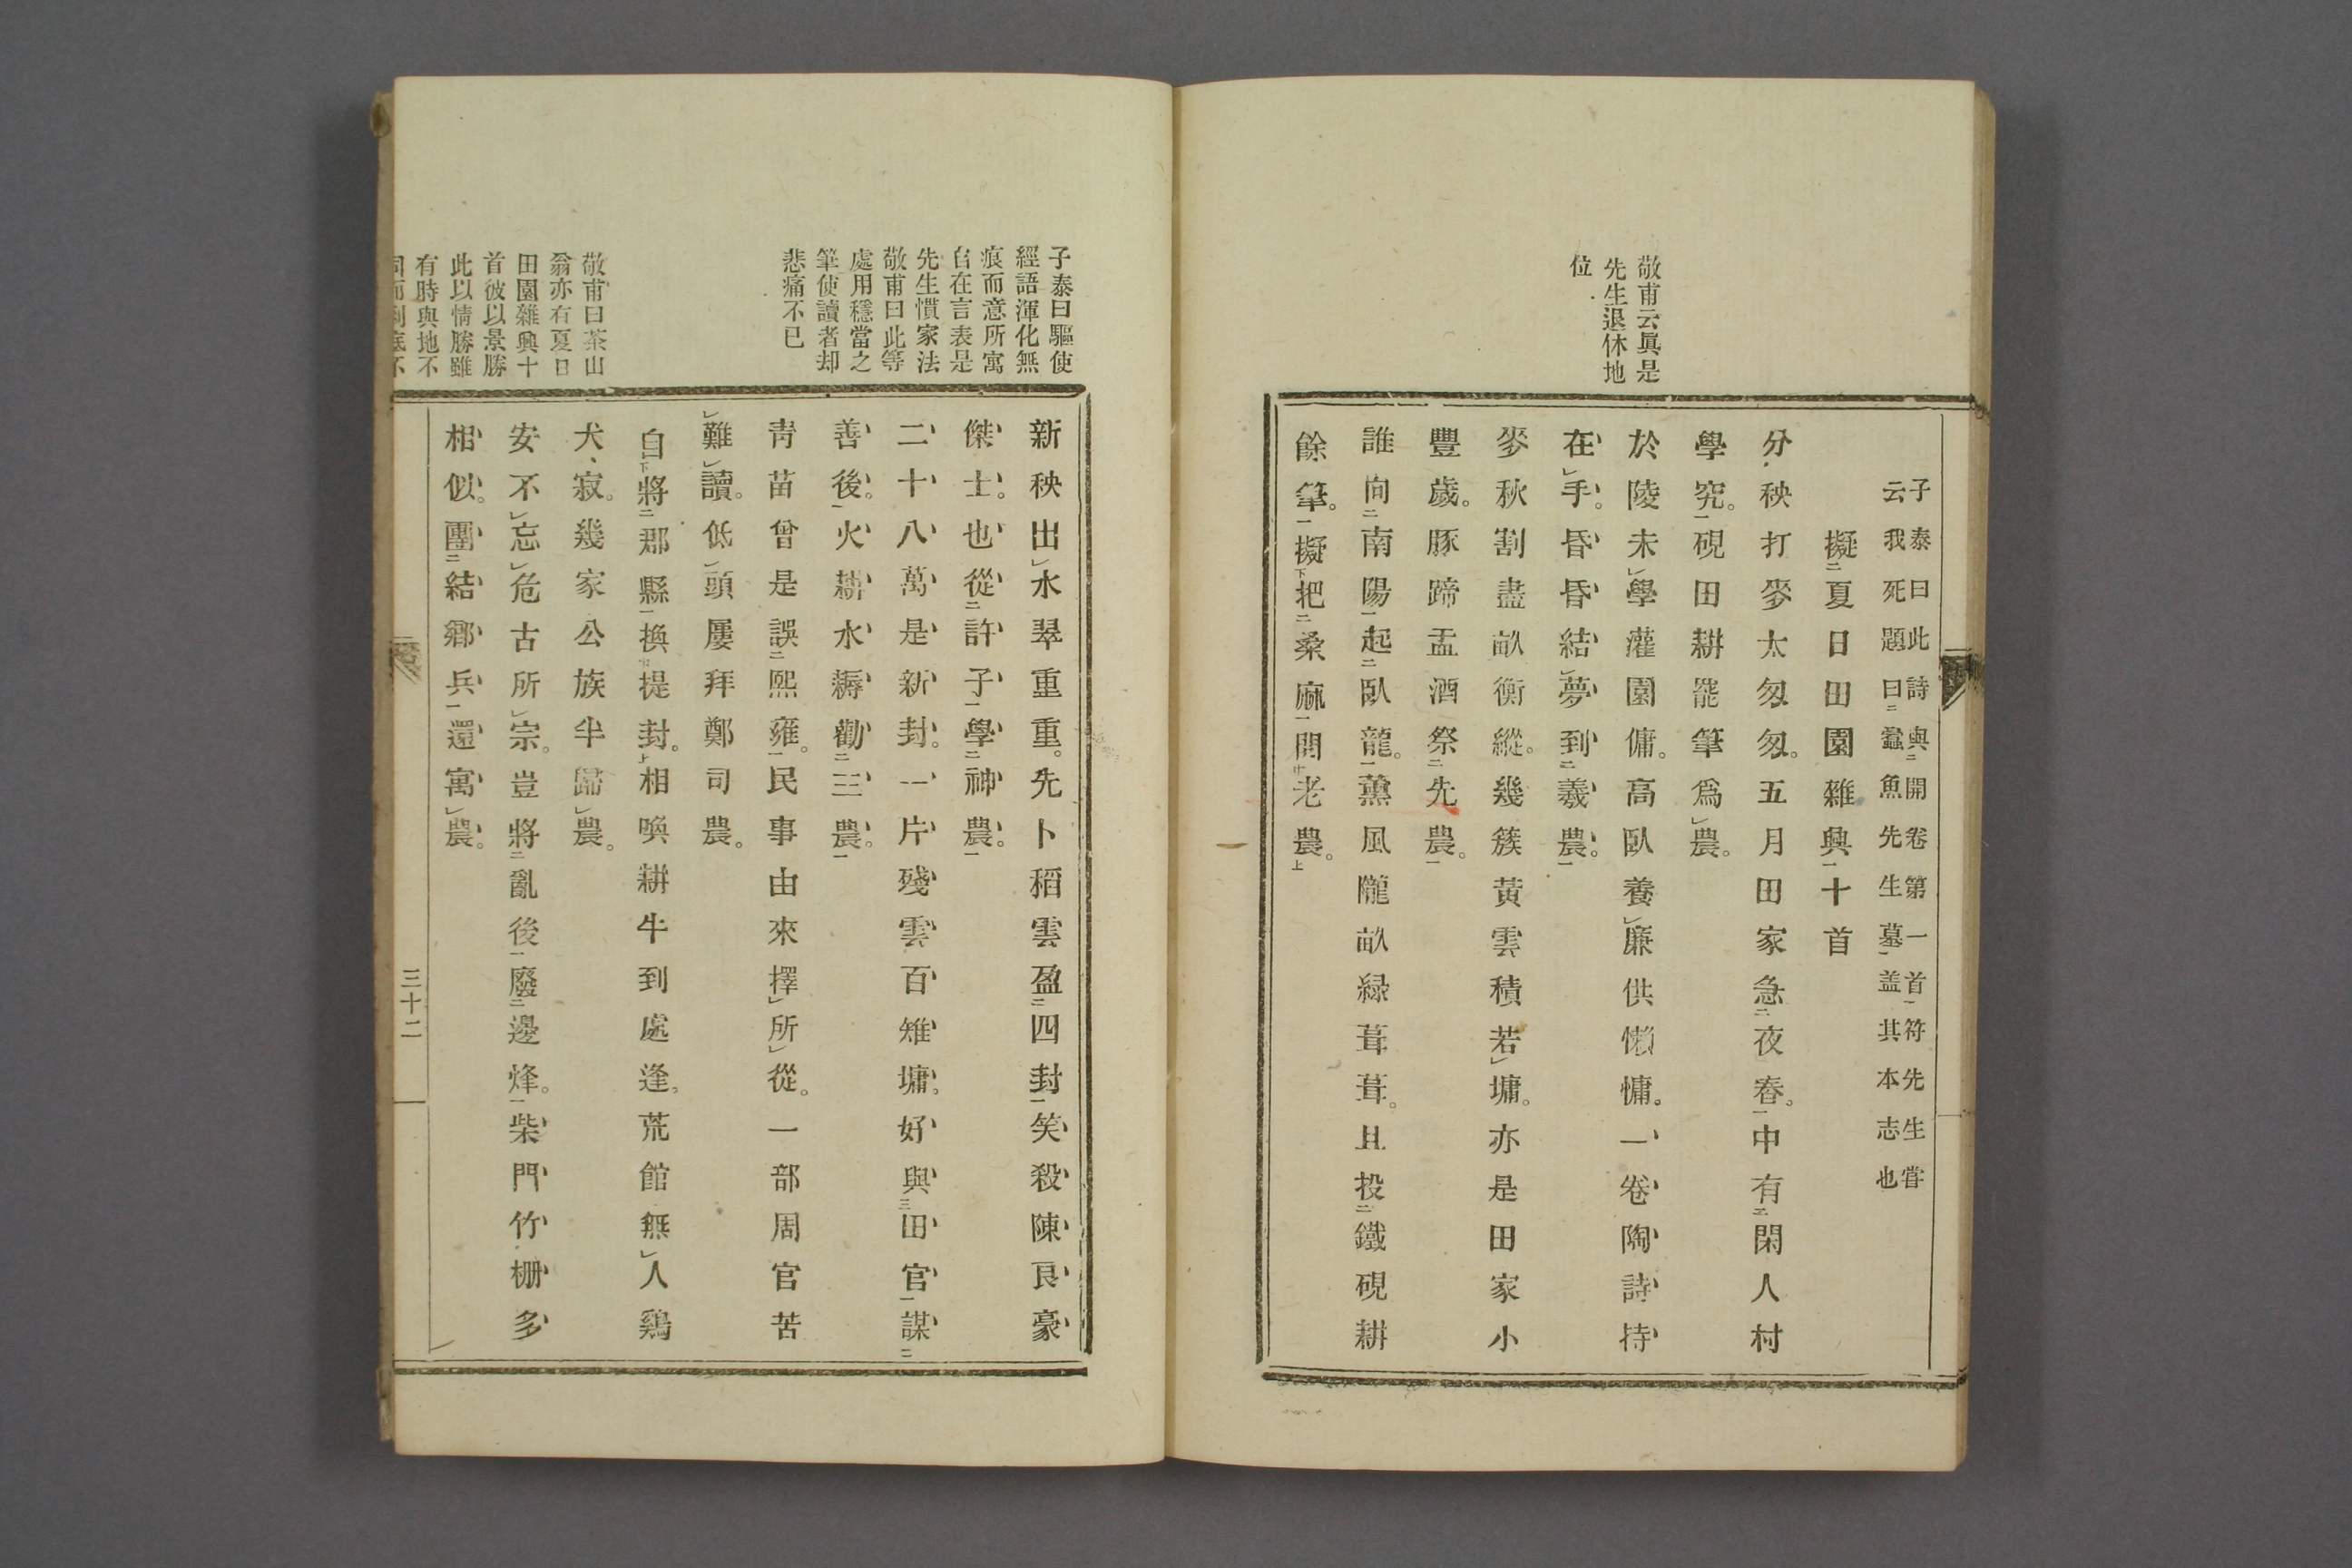 敬甫云眞是
先生退休地
位
子泰曰此詩與開卷第一首符先生嘗
云我死題曰蠧魚先生墓盖其本志也
擬夏日田園雜興十首
分秧打麥太匆匆。五月田家急夜舂。中有閑人村
學究。硯田耕罷筆爲農。
於陵未學灌園傭。高臥養廉供懶慵。一卷陶詩持
在手。昏昏結夢到羲農。
麥秋割盡畝衡縱。幾簇黃雲積若墉。亦是田家小
豐歲。豚蹄盂酒祭先農。
誰向南陽起臥龍。薰風隴畝緑葺葺。且投鐵硯耕
餘筆。擬把桑麻問老農。
子泰曰驅使
經語渾化無
痕而意所寓
自在言表是
先生慣家法
敬甫曰此等
處用穩當之
筆使讀者却
悲痛不已
敬甫曰茶山
翁亦有夏日
田園雜興十
首彼以景勝
此以情勝雖
有時與地不
新秧出水翠重重。先卜稻雲盈四封笑殺陳良豪
傑士。也從許子學神農。
二十八萬是新封。一片殘雲百雉墉。好與田官謀
善後。火耨水耨勸三農。
靑苗曾是誤熙雍。民事由來擇所從。一部周官苦
難讀。低頭屢拜鄭司農。
自將郡縣換提封。相喚耕牛到處逢。荒館無人鷄
犬寂。幾家公族半歸農。
安不忘危古所宗。豈將亂後廢邊烽。柴門竹栅多
相似。團結鄕兵還寓農。
三十二